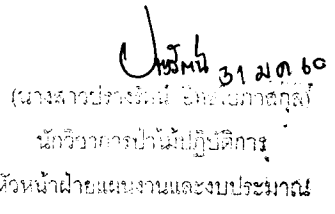 31 มค 60
(นางสาวปรางรัตน์
นักวิชาการป่าไม้ปฏิบัติการ
หัวหน้าฝ่ายแผนงานและงบประมาณ